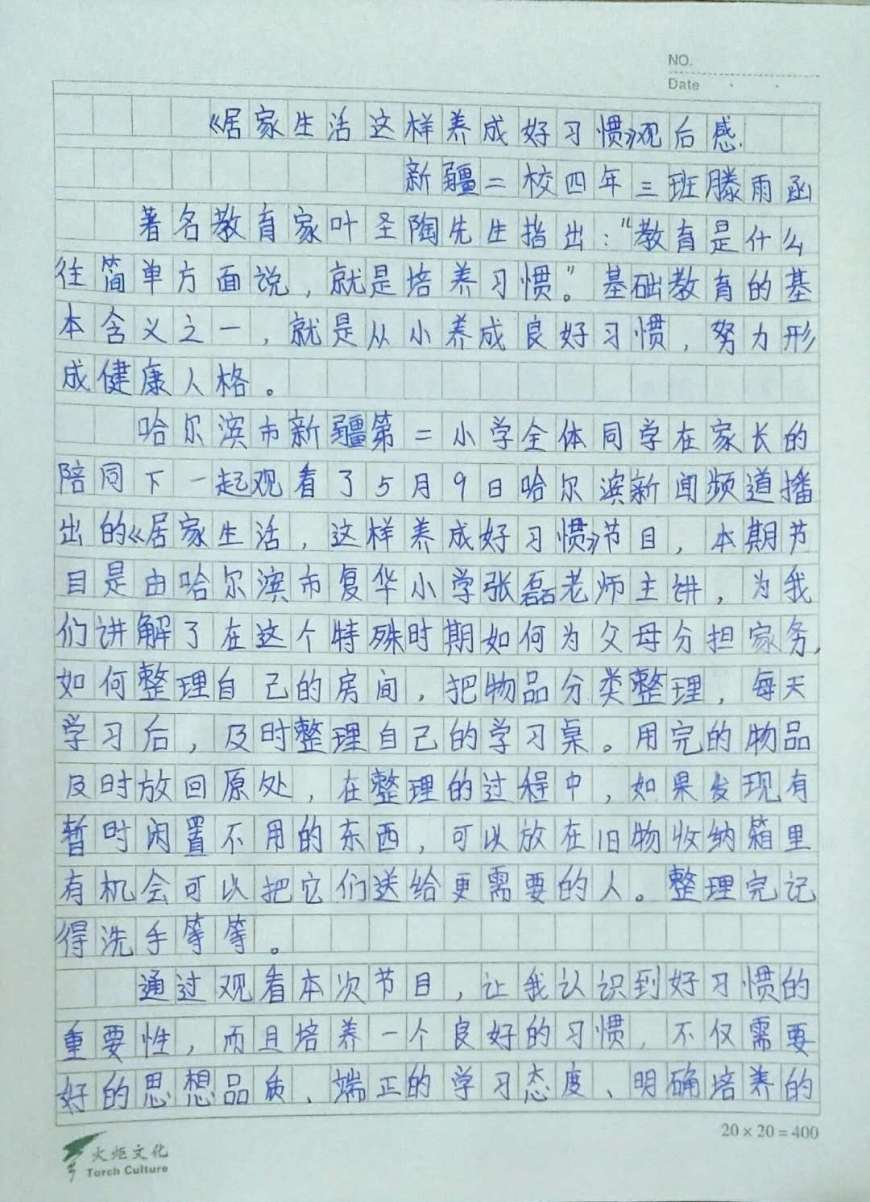 NO.
Date
《居家生活这样养成好习惯》观后感
新疆二校四年三班滕雨函
著名教育家叶圣陶先生指出:“教育是什么
往简单方面说,就是培养习惯”。基础教育的基
本含义之一,就是从小养成良好习惯,努力形
成健康人格。
哈尔滨市新疆第二小学全体同学在家长的
陪同下一起观看了5月9日哈尔滨新闻频道播
出的《居家生活,这样养成好习惯》节目,本期节
目是由哈尔滨市复华小学张磊老师主讲,为我
们讲解了在这个特殊时期如何为父母分担家务,
如何整理自己的房间,把物品分类整理,每天
学习后,及时整理自己的学习桌。用完的物品
及时放回原处,在整理的过程中,如果发现有
暂时闲置不用的东西,可以放在旧物收纳箱里
有机会可以把它们送给更需要的人。整理完记
得洗手等等。
通过观看本次节目,让我认识到好习惯的
重要性,而且培养一个良好的习惯,不仅需要
好的思想品质、端正的学习态度、明确培养的
20×20=400
火炬文化
Torch Culture